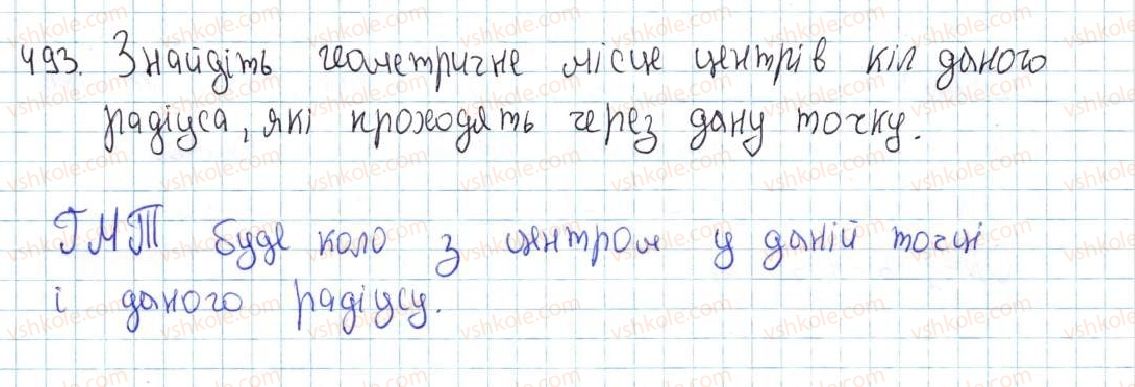 493. Знайдіть геометричне місце центрів кіл даного
радіуса, які проходять через дану точку.
ГМТ буде коло з центром у даній точці
і даного радіусу.